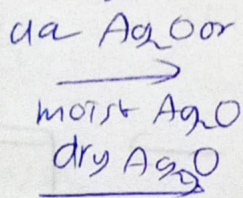 aq Ag₂O or
moist Ag₂O
dry Ag₂O